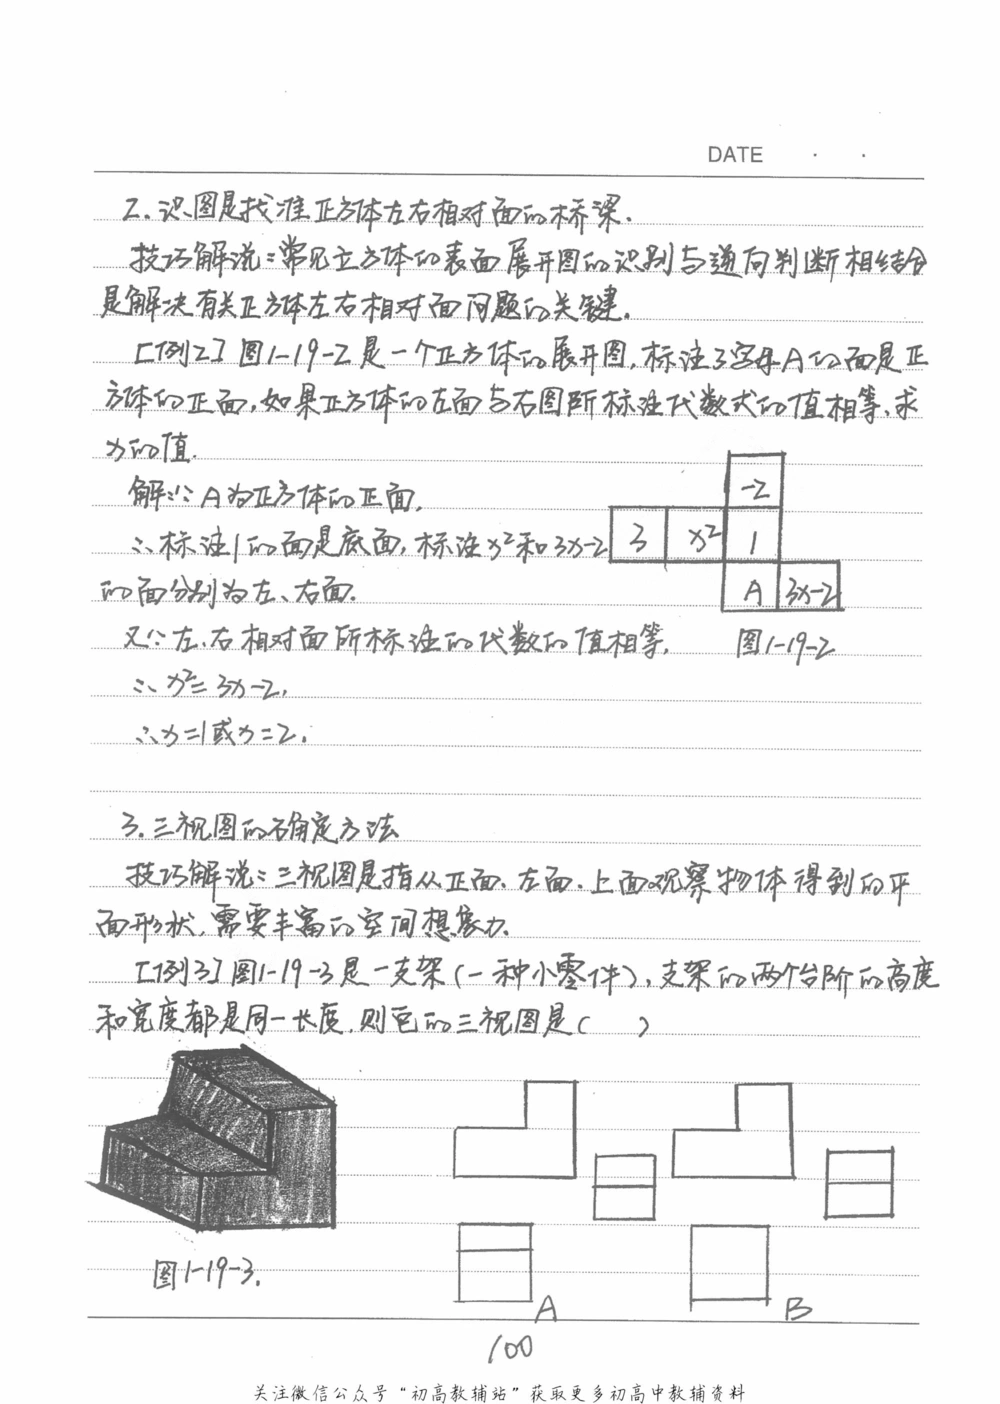 DATE · ·
2.识图是找准正方体左右相对面的桥梁.
技巧解说:常见立方体的表面展开图的识别与逆向判断相结合
是解决有关正方体左右相对面问题的关键.
[例2]图1-19-2是一个正方体的展开图,标注了字母A的面是正
方体的正面,如果正方体的左面与右图所标注代数式的值相等,求
x的值.
-2
解:∵A为正方体的正面,
∴标注1的面是底面,标注x²和3x-2
3 x² 1
的面分别为左、右面.
A 3x-2
又∵左、右相对面所标注的代数的值相等,
图1-19-2
∴x²=3x-2,
∴x=1或x=2.
3.三视图的确定方法
技巧解说:三视图是指从正面、左面、上面观察物体得到的平
面形状,需要丰富的空间想象力.
[例3]图1-19-3是一支架(一种小零件),支架的两个台阶的高度
和宽度都是同一长度,则它的三视图是( )
图1-19-3.
A
B
100
关注微信公众号“初高教辅站”获取更多初高中教辅资料